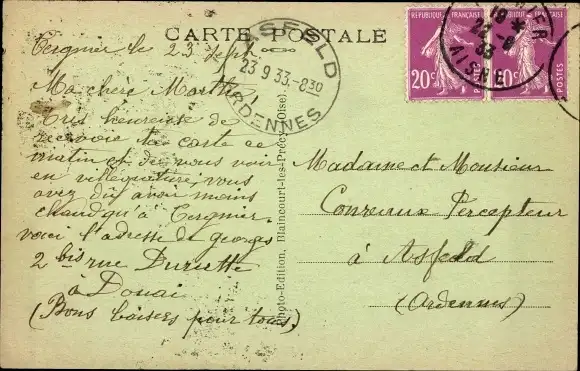 CARTE POSTALE
Tergnier le 23 Sept
Ma chère Marthe,
Très heureuse de
recevoir ta carte ce
matin et de vous voir
en villégiature, vous
avez dû avoir moins
chaud qu'à Tergnier.
voici l'adresse de Georges
2 bis rue Durutte
à Douai
(Bons baisers pour tous.)
Photo-Edition, Blaincourt-les-Précy (Oise).
ASFELD
23 9 33 - 8 30
ARDENNES
REPUBLIQUE FRANÇAISE
20c
REPUBLIQUE FRANÇAISE
20c
POSTES
AISNE
Madame et Monsieur
Conreaux Percepteur
à Asfeld
(Ardennes)